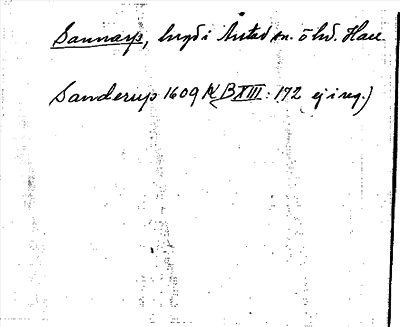 Sannarp, bygd i Årstad sn. o hd. Hall
Sanderup 1609 KBXIII: 172 ej i reg.)